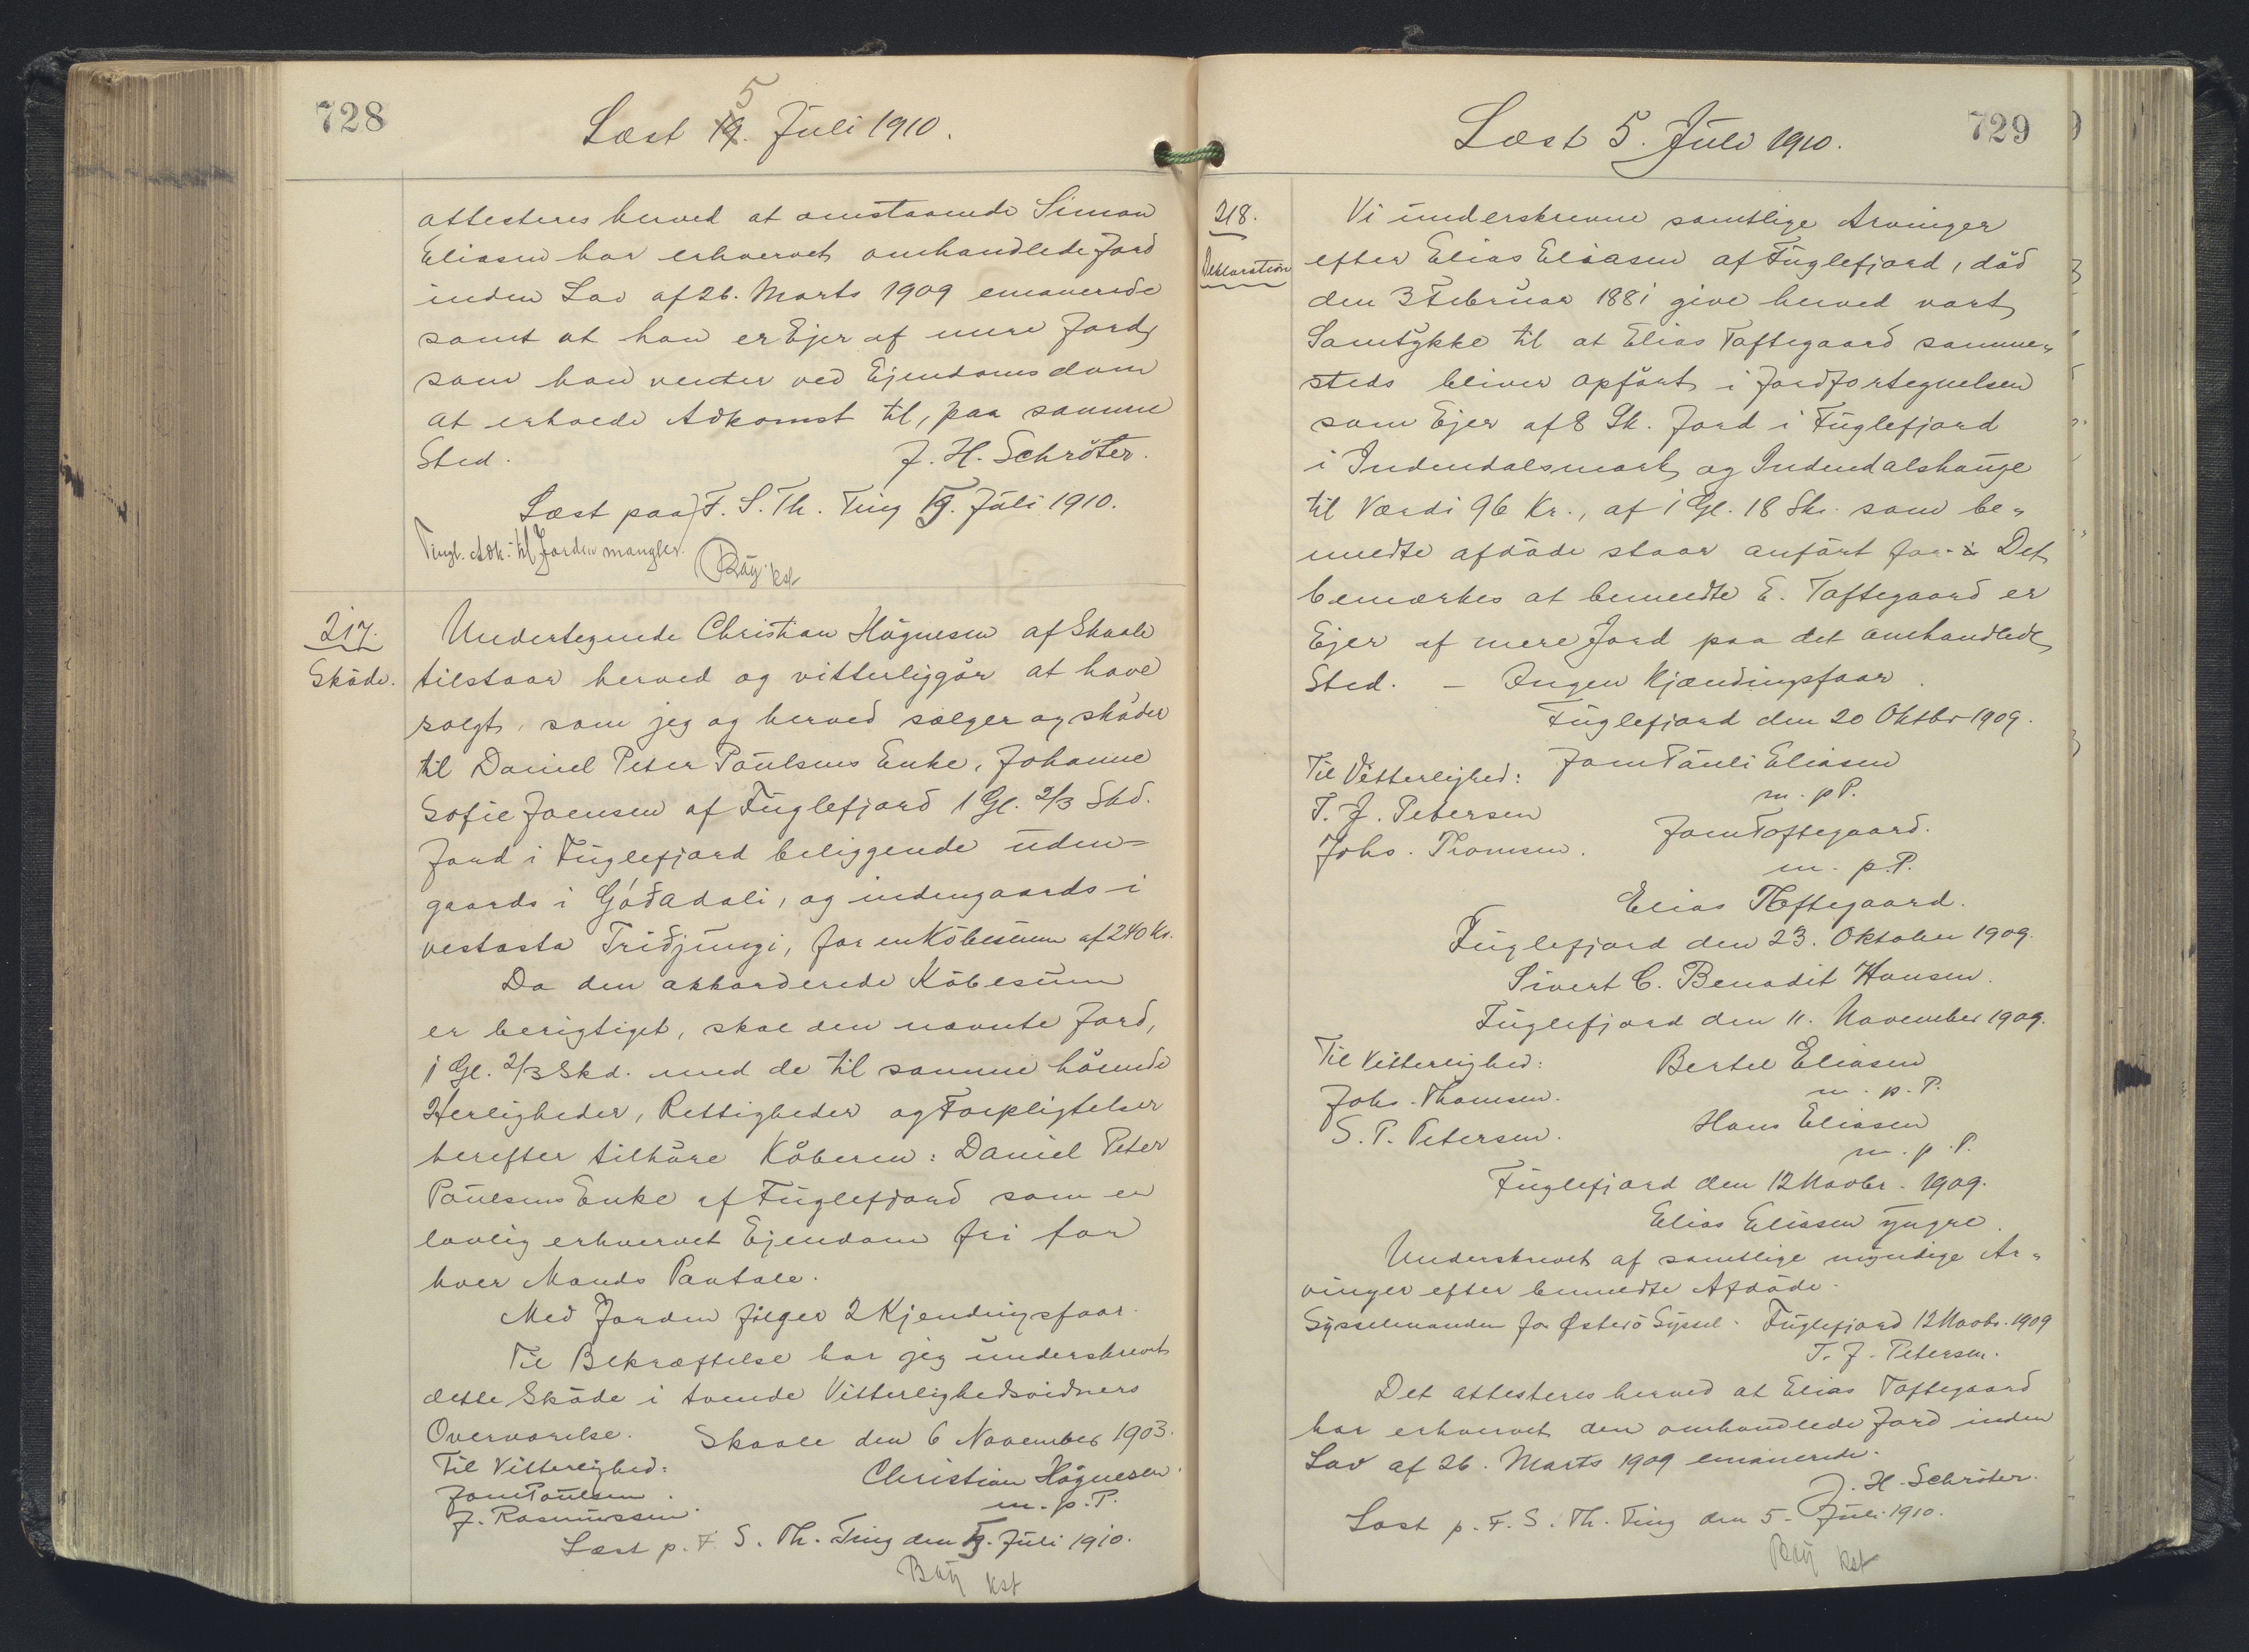 728
Læst 5. Juli 1910.
attesteres herved at omstaaende Simon
Eliasen har erhvervet omhandlede Jord
inden Lov af 26. Marts 1909 emanerede
samt at han er Ejer af mere Jord,
som han venter ved Ejendomsdom
at erholde Adkomst til, paa samme
Sted. J. H. Schröter.
Læst paa F. S. Th. Ting 5. Juli 1910.
Tingl. Adk. til Jorden mangler.
Bay kst
217. Undertegnede Christian Högnesen af Skaale
Sköde. tilstaar herved og vitterliggör at have
solgt, som jeg og herved sælger og sköder
til Daniel Peter Poulsens Enke, Johanne
Sofie Joensen af Fuglefjord 1 Gl. 2/3 Skd.
Jord i Fuglefjord beliggende uden-
gaards i Góðadali, og indengaards i
vestasta Triðjungi, for en Köbesum af 240 Kr.
Da den akkorderede Köbesum
er berigtiget, skal den nævnte Jord,
1 Gl. 2/3 Skd. med de til samme hörende
Herligheder, Rettigheder og Forpligtelser
herefter tilhöre Köberen: Daniel Peter
Poulsens Enke af Fuglefjord som en
lovlig erhvervet Ejendom fri for
hver Mands Paatale.
Med Jorden fölger 2 Kjendingsfaar.
Til Bekræftelse har jeg underskrevet
dette Sköde i tvende Vitterlighedsvidners
Overværelse. Skaale den 6 November 1903.
Til Vitterlighed: Christian Högnesen
Joen Poulsen. m. p. P.
J. Rasmussen.
Læst p. F. S. Th. Ting den 5. Juli 1910.
Bay kst
729
Læst 5. Juli 1910.
218. Vi underskrevne samtlige Arvinger
Deklaration efter Elias Eliasen af Fuglefjord, död
den 3 Februar 1881 give herved vort
Samtykke til at Elias Toftegaard samme-
steds bliver opfört i Jordfortegnelsen
som Ejer af 8 Sk. Jord i Fuglefjord
i Indendalsmark og Indendalshauge
til Værdi 96 Kr., af 1 Gl. 18 Sk. som be-
meldte afdöde staar anfört for. Det
bemærkes at bemeldte E. Toftegaard er
Ejer af mere Jord paa det omhandlede
Sted. — Ingen Kjændingsfaar.
Fuglefjord den 20 Oktbr 1909.
Til Vitterlighed: Joen Pauli Eliasen
T. J. Petersen m. p P.
Johs. Thomsen. Joen Toftegaard.
m. p. P.
Elias Toftegaard.
Fuglefjord den 23. Oktober 1909.
Sivert C. Benadit Hansen.
Fuglefjord den 11. November 1909.
Til Vitterlighed: Bertel Eliasen
Johs. Thomsen. m. p. P.
S. P. Petersen. Hans Eliasen
m. p. P.
Fuglefjord den 12 Novbr. 1909.
Elias Eliasen yngre.
Underskrevet af samtlige myndige Ar-
vinger efter bemeldte Afdöde.
Sysselmanden for Østerö Syssel. Fuglefjord 12 Novbr. 1909
T. J. Petersen.
Det attesteres herved at Elias Toftegaard
har erhvervet den omhandlede Jord inden
Lov af 26. Marts 1909 emanerede.
J. H. Schröter.
Læst p. F. S. Th. Ting den 5. Juli 1910.
Bay kst